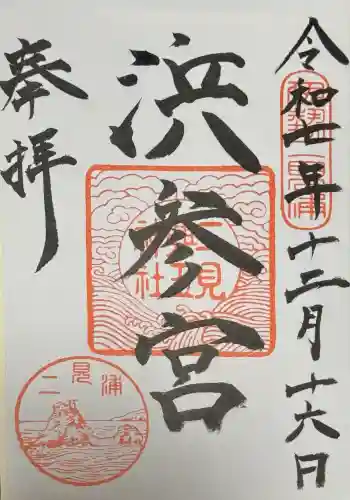 令和七年十二月十六日
浜参宮
奉拝
二見
興玉
神社
二見浦